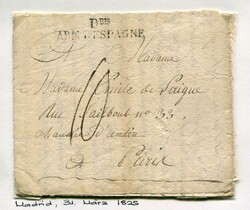 Dbis
ARM. D'ESPAGNE
A Madame
Madame Emile de
Rue Taitbout no 33.
chaussée d'antin
A Paris
Madrid, 31. März 1825